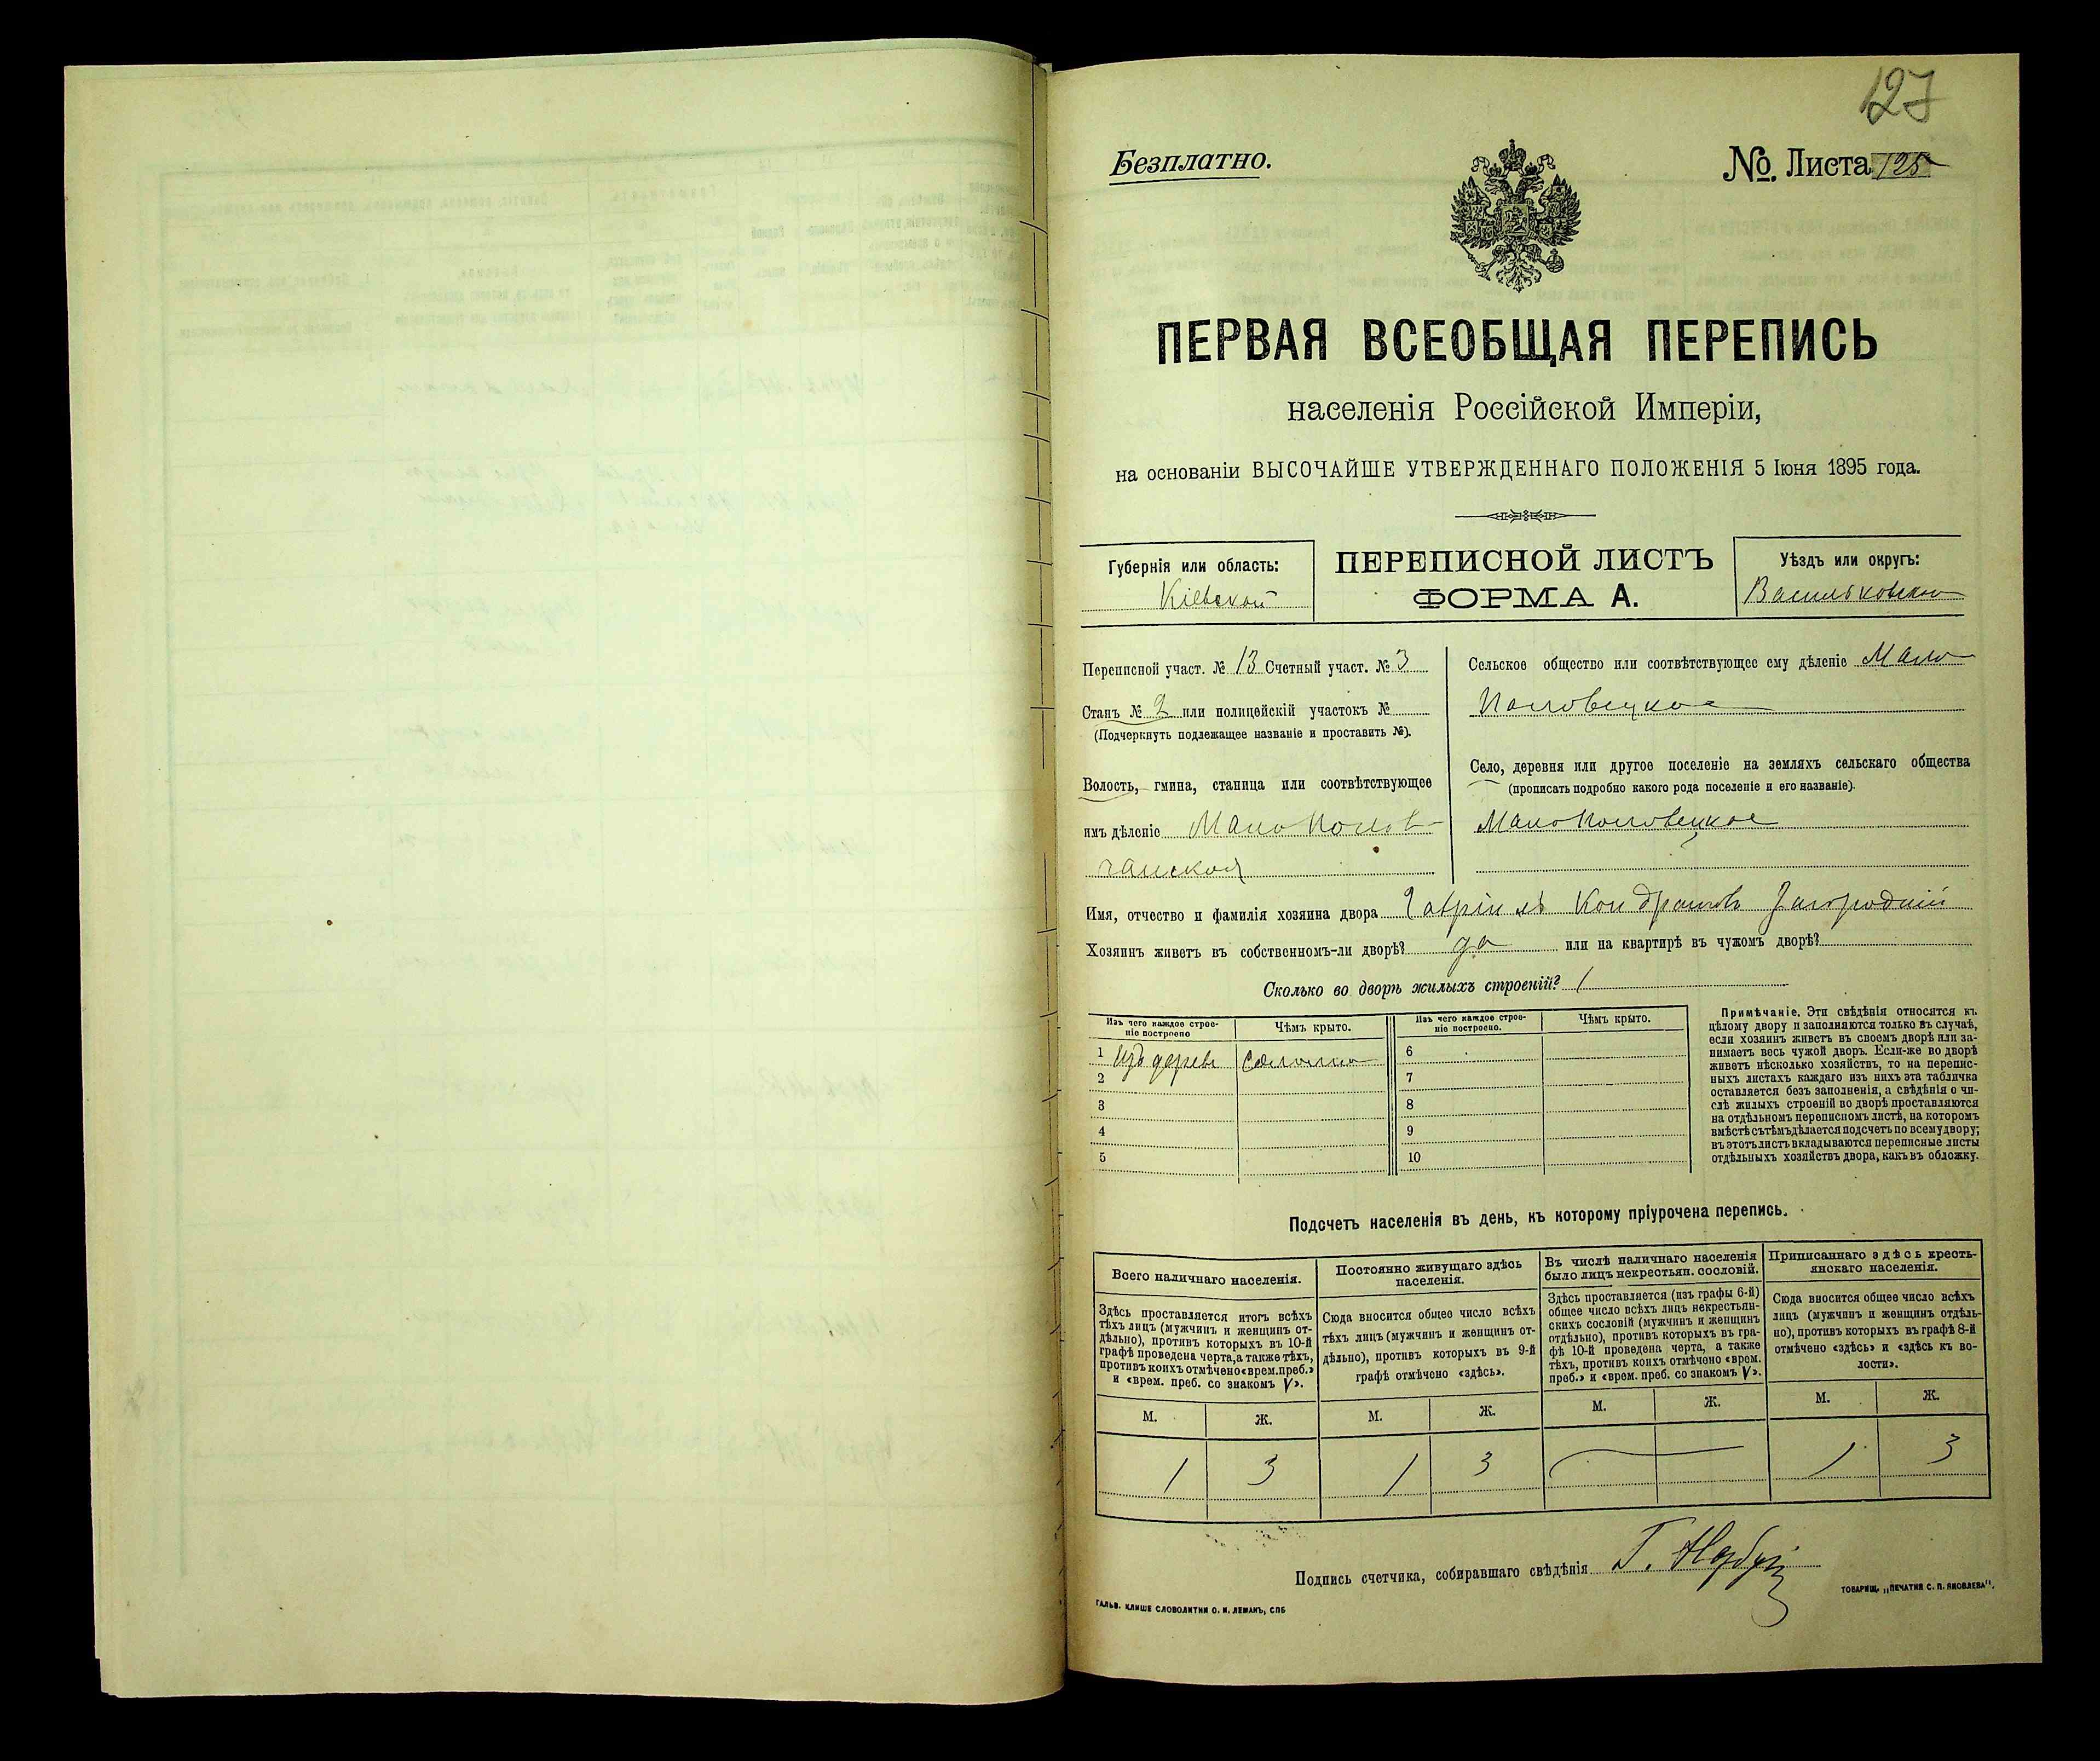 127
Безплатно.
№. Листа 125
ПЕРВАЯ ВСЕОБЩАЯ ПЕРЕПИСЬ
населенія Россійской Имперіи,
на основаніи ВЫСОЧАЙШЕ УТВЕРЖДЕННАГО ПОЛОЖЕНІЯ 5 Іюня 1895 года.
Губернія или область:
Кіевской
ПЕРЕПИСНОЙ ЛИСТЪ
ФОРМА А.
Уѣздъ или округъ:
Васильковскаго
Переписной участ. № 13 Счетный участ. № 3
Станъ № 2 или полицейскій участокъ №
(Подчеркнуть подлежащее названіе и проставить №).
Волость, гмина, станица или соотвѣтствующее
имъ дѣленіе Малополов
чанской
Сельское общество или соотвѣтствующее ему дѣленіе Мало
Половецкое
Село, деревня или другое поселеніе на земляхъ сельскаго общества
(прописать подробно какого рода поселеніе и его названіе).
Малополовецкое
Имя, отчество и фамилія хозяина двора Гавріилъ Кондратовъ Загородній
Хозяинъ живетъ въ собственномъ-ли дворѣ? да или на квартирѣ въ чужомъ дворѣ?
Сколько во дворѣ жилыхъ строеній? 1
Изъ чего каждое строе-
ніе построено
Чѣмъ крыто.
Изъ чего каждое строе-
ніе построено.
Чѣмъ крыто.
1 Изъ дерева Солома 6
2 7
3 8
4 9
5 10
Примѣчаніе. Эти свѣдѣнія относятся къ
цѣлому двору и заполняются только въ случаѣ,
если хозяинъ живетъ въ своемъ дворѣ или за-
нимаетъ весь чужой дворъ. Если-же во дворѣ
живетъ нѣсколько хозяйствъ, то на перепис-
ныхъ листахъ каждаго изъ нихъ эта табличка
оставляется безъ заполненія, а свѣдѣнія о чи-
слѣ жилыхъ строеній во дворѣ проставляются
на отдѣльномъ переписномъ листѣ, на которомъ
вмѣстѣ съ тѣмъ дѣлается подсчетъ по всему двору;
въ этотъ листъ вкладываются переписные листы
отдѣльныхъ хозяйствъ двора, какъ въ обложку.
Подсчетъ населенія въ день, къ которому пріурочена перепись.
Всего наличнаго населенія.
Здѣсь проставляется итогъ всѣхъ
тѣхъ лицъ (мужчинъ и женщинъ от-
дѣльно), противъ которыхъ въ 10-й
графѣ проведена черта, а также тѣхъ,
противъ коихъ отмѣчено «врем. преб.»
и «врем. преб. со знакомъ V».
Постоянно живущаго здѣсь
населенія.
Сюда вносится общее число всѣхъ
тѣхъ лицъ (мужчинъ и женщинъ от-
дѣльно), противъ которыхъ въ 9-й
графѣ отмѣчено «здѣсь».
Въ числѣ наличнаго населенія
было лицъ некрестьян. сословій.
Здѣсь проставляется (изъ графы 6-й)
общее число всѣхъ лицъ некрестьян-
скихъ сословій (мужчинъ и женщинъ
отдѣльно), противъ которыхъ въ гра-
фѣ 10-й проведена черта, а также
тѣхъ, противъ коихъ отмѣчено «врем.
преб.» и «врем. преб. со знакомъ V».
Приписаннаго здѣсь кресть-
янскаго населенія.
Сюда вносится общее число всѣхъ
лицъ (мужчинъ и женщинъ отдѣль-
но), противъ которыхъ въ графѣ 8-й
отмѣчено «здѣсь» и «здѣсь къ во-
лости».
М. Ж. М. Ж. М. Ж. М. Ж.
1 3 1 3 1 3
Подпись счетчика, собиравшаго свѣдѣнія Г.
ГАЛЬВ. КЛИШЕ СЛОВОЛИТНИ О. И. ЛЕМАНЪ, СПБ
ТОВАРИЩ. „ПЕЧАТНЯ С. П. ЯКОВЛЕВА".